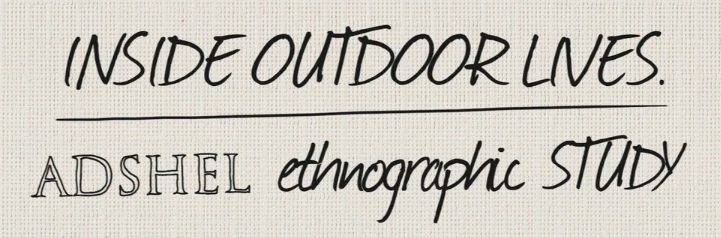 INSIDE OUTDOOR LIVES.
ADSHEL ethnographic STUDY